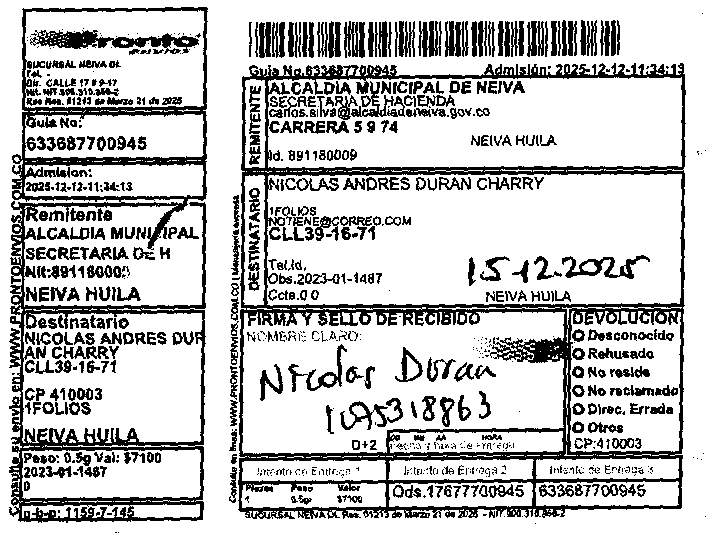 Pronto
Envios
SUCURSAL NEIVA DL
Tel. -
Dir. CALLE 17 # 9-17
Nit. NIT 900.310.856-2
Res Res. 01213 de Marzo 21 de 2025
Guia No:
633687700945
Admision:
2025-12-12-11:34:13
Remitente
ALCALDIA MUNICIPAL
SECRETARIA DE H
Nit:891180009
NEIVA HUILA
Destinatario
NICOLAS ANDRES DUR
AN CHARRY
CLL39-16-71
CP 410003
1FOLIOS
NEIVA HUILA
Peso: 0.5g Val: $7100
2023-01-1487
0
g-b-p: 1159-7-145
Consulte su envio en: WWW.PRONTOENVIOS.COM.CO
Guia No.633687700945 Admisión: 2025-12-12-11:34:13
REMITENTE
ALCALDIA MUNICIPAL DE NEIVA
SECRETARIA DE HACIENDA
carlos.silva@alcaldiadeneiva.gov.co
CARRERA 5 9 74
NEIVA HUILA
Id. 891180009
DESTINATARIO
NICOLAS ANDRES DURAN CHARRY
1FOLIOS
NOTIENE@CORREO.COM
CLL39-16-71
Tel.Id.
Obs.2023-01-1487
Ccte.0 0
15-12.2025
NEIVA HUILA
FIRMA Y SELLO DE RECIBIDO
NOMBRE CLARO:
Nicolas Duran
1095318863
0+2
DD MM AA HORA
Fecha y Hora de Entrega
DEVOLUCION
Desconocido
Rehusado
No reside
No reclamado
Direc. Errada
Otros
CP:410003
Intento de Entrega 1 Intento de Entrega 2 Intento de Entrega 3
Piezas Peso Valor
1 0.5gr $7100
Ods.17677700945 633687700945
SUCURSAL NEIVA DL Res. 01213 de Marzo 21 de 2025 - NIT.900.310.856-2